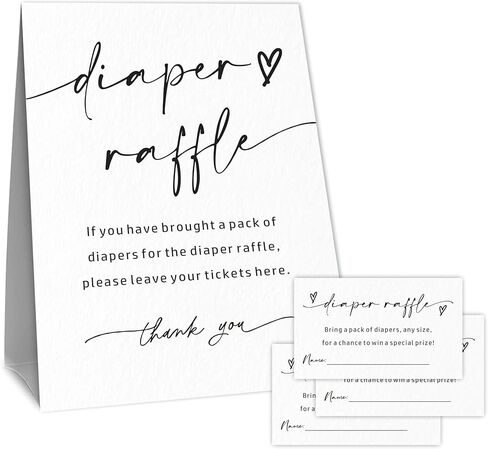 diaper
raffle
If you have brought a pack of
diapers for the diaper raffle,
please leave your tickets here.
thank you
diaper raffle
Bring a pack of diapers, any size,
for a chance to win a special prize!
Name:
for a chance to win a special prize!
Name:
Brin
for a
Name: